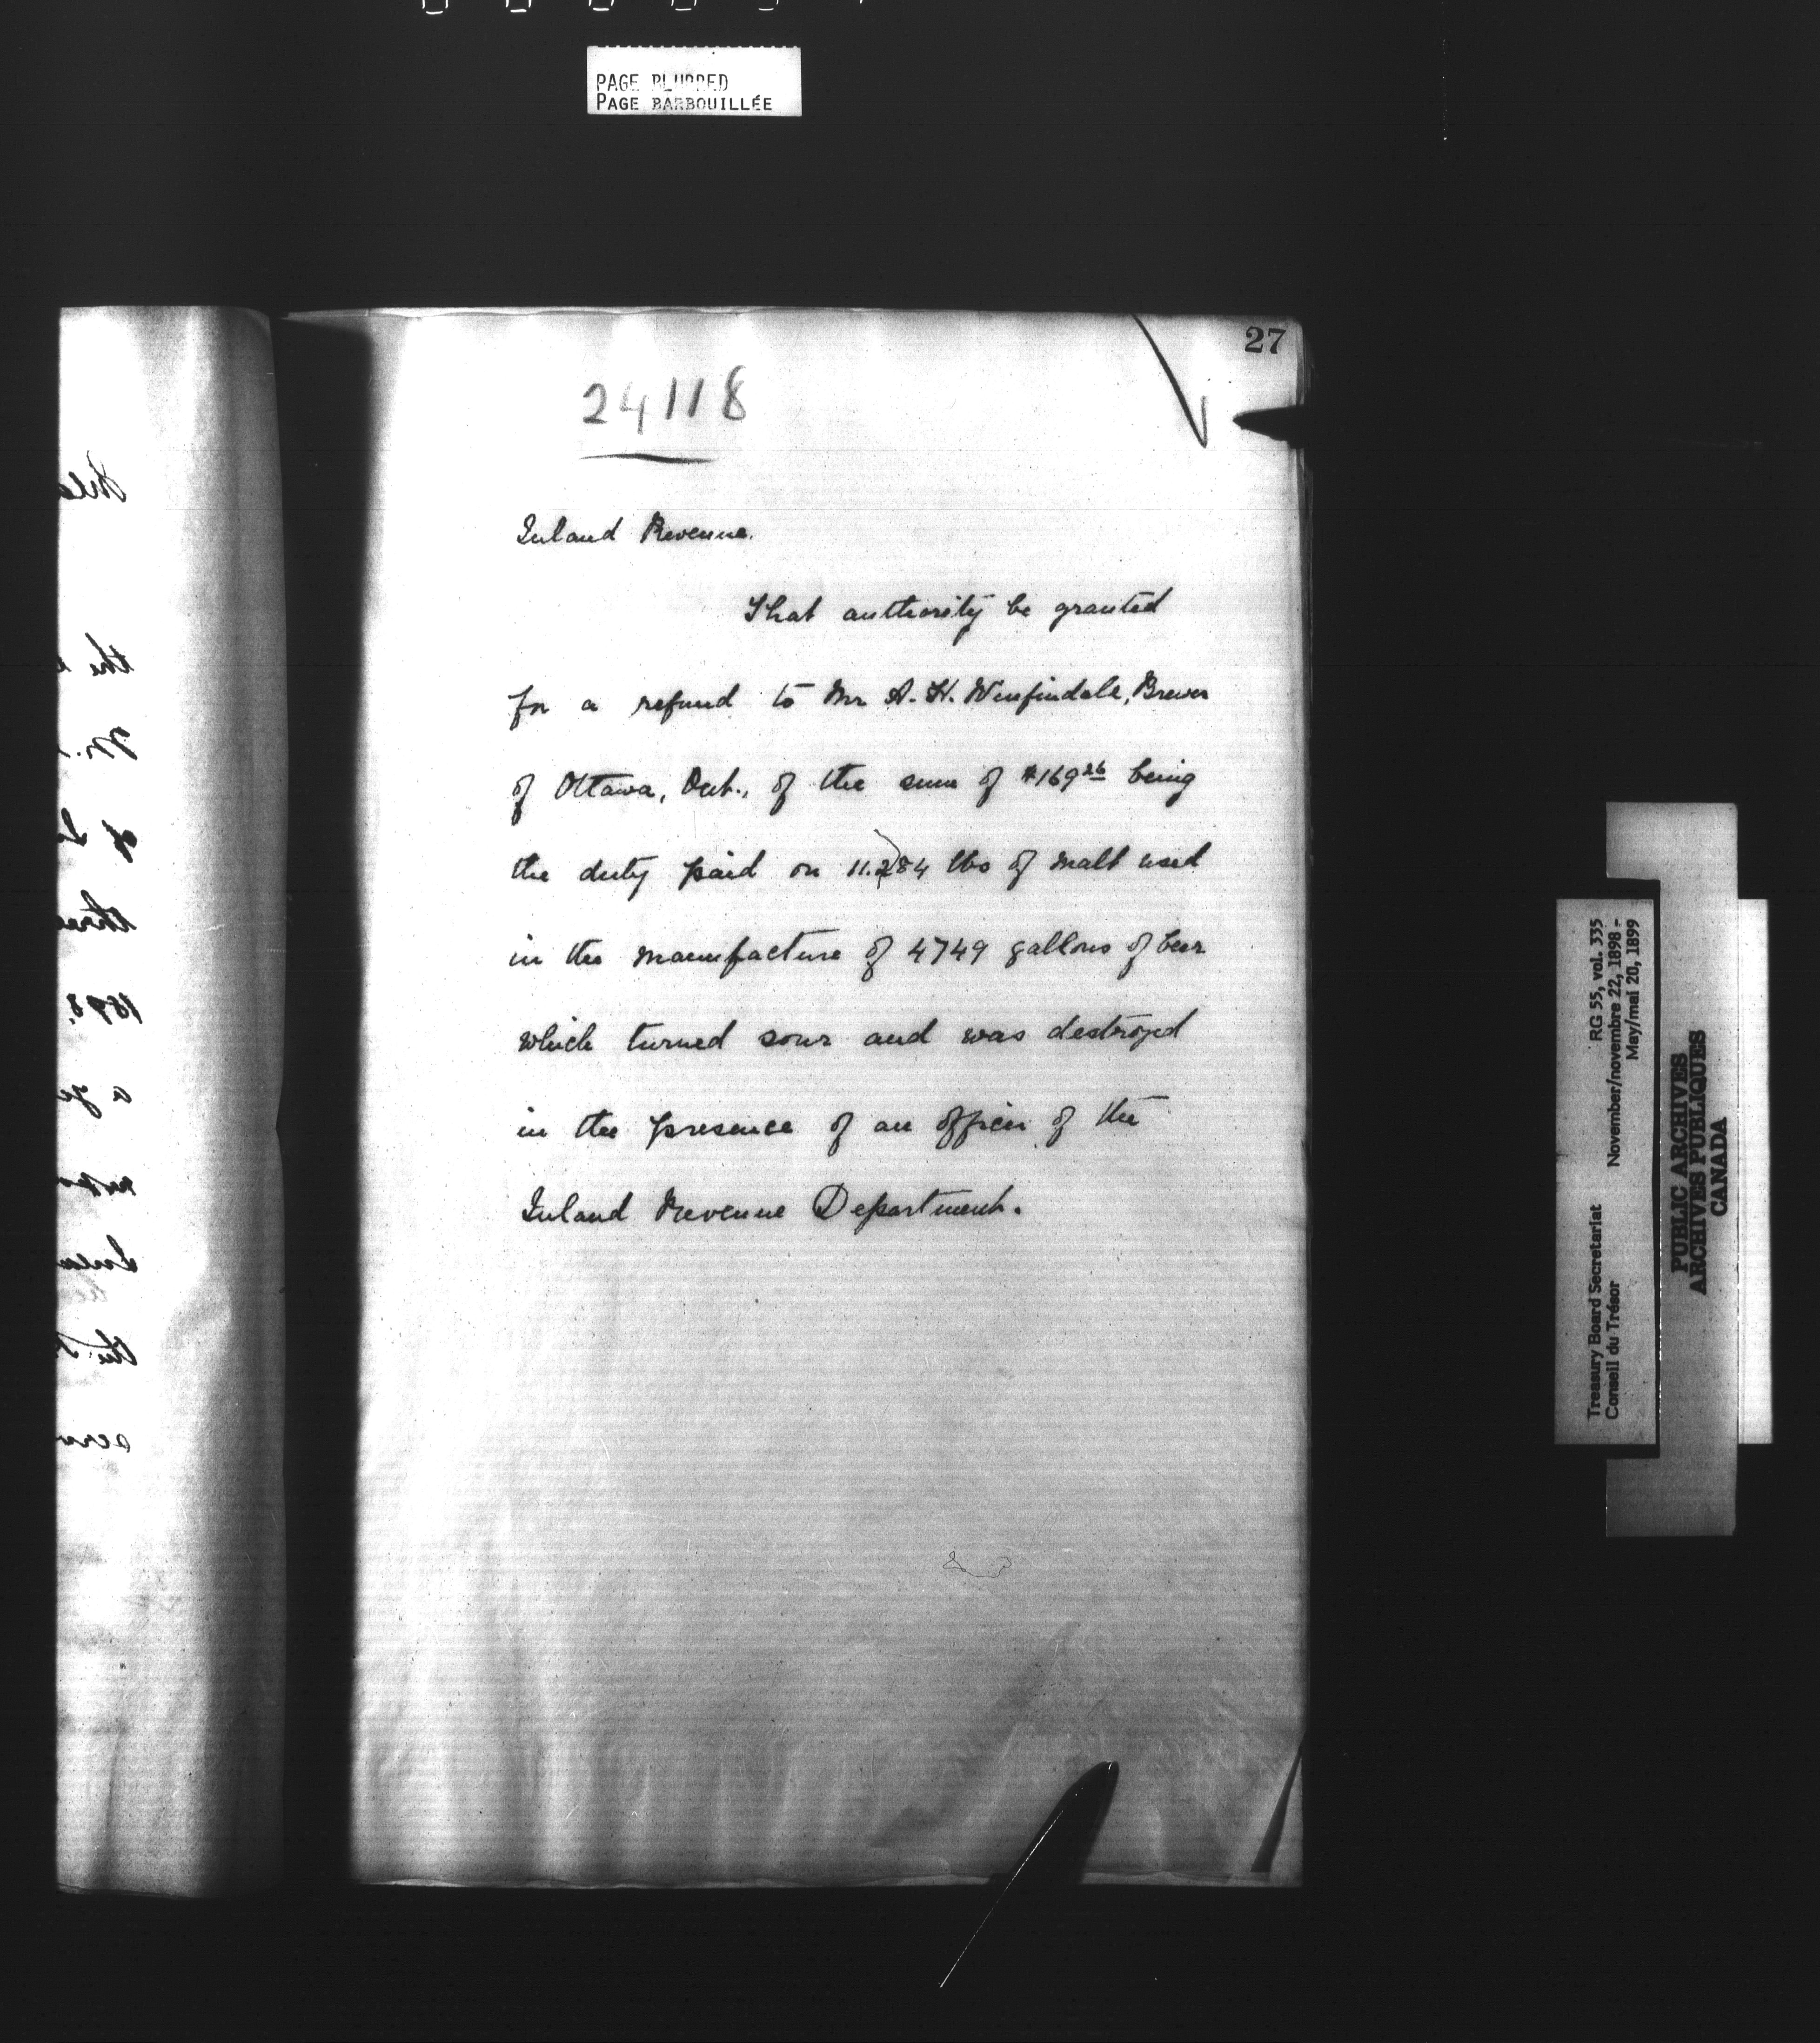 PAGE BLURRED
PAGE BARBOUILLÉE
27
24118
Inland Revenue.
That authority be granted
for a refund to Mr A. H. Winfindale, Brewer
of Ottawa, Ont., of the sum of $169 26 being
the duty paid on 11.284 lbs of malt used
in the manufacture of 4749 gallons of beer
which turned sour and was destroyed
in the presence of an officer of the
Inland Revenue Department.
the
1898.
Treasury Board Secretariat RG 55, vol. 335
Conseil du Trésor November/novembre 22, 1898 -
May/mai 20, 1899
PUBLIC ARCHIVES
ARCHIVES PUBLIQUES
CANADA